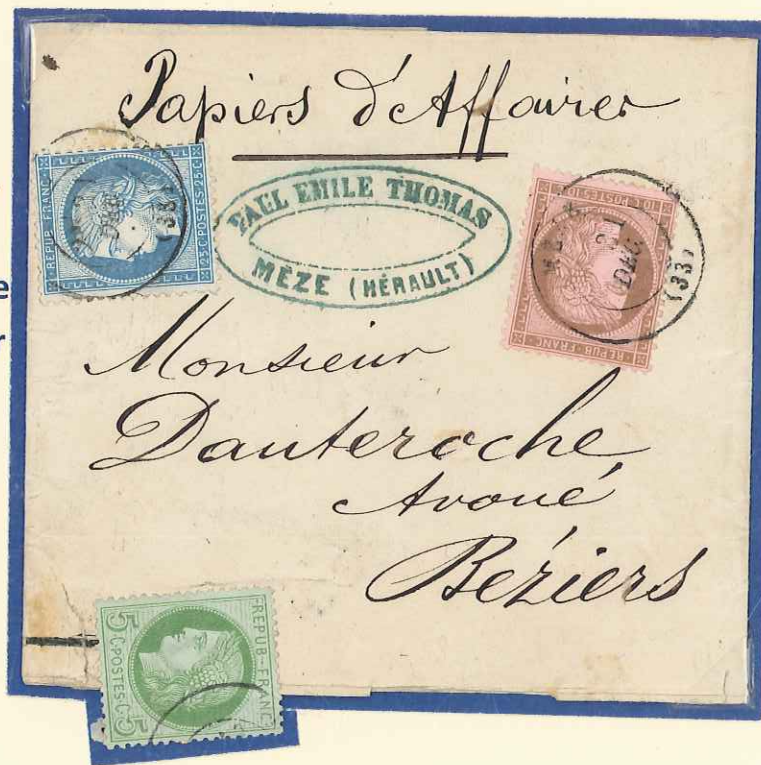 Papiers d'Affaires
REPUB. FRANC.
25·C·POSTES·25·C
DEC
(33)
PAUL EMILE THOMAS
MÈZE (HÉRAULT)
10·C·POSTES·10·C
REPUB. FRANC.
DEC
(33)
e
r
Monsieur
Dauteroche
Avoué
Béziers
REPUB. FRANC.
5 C·POSTES·C 5